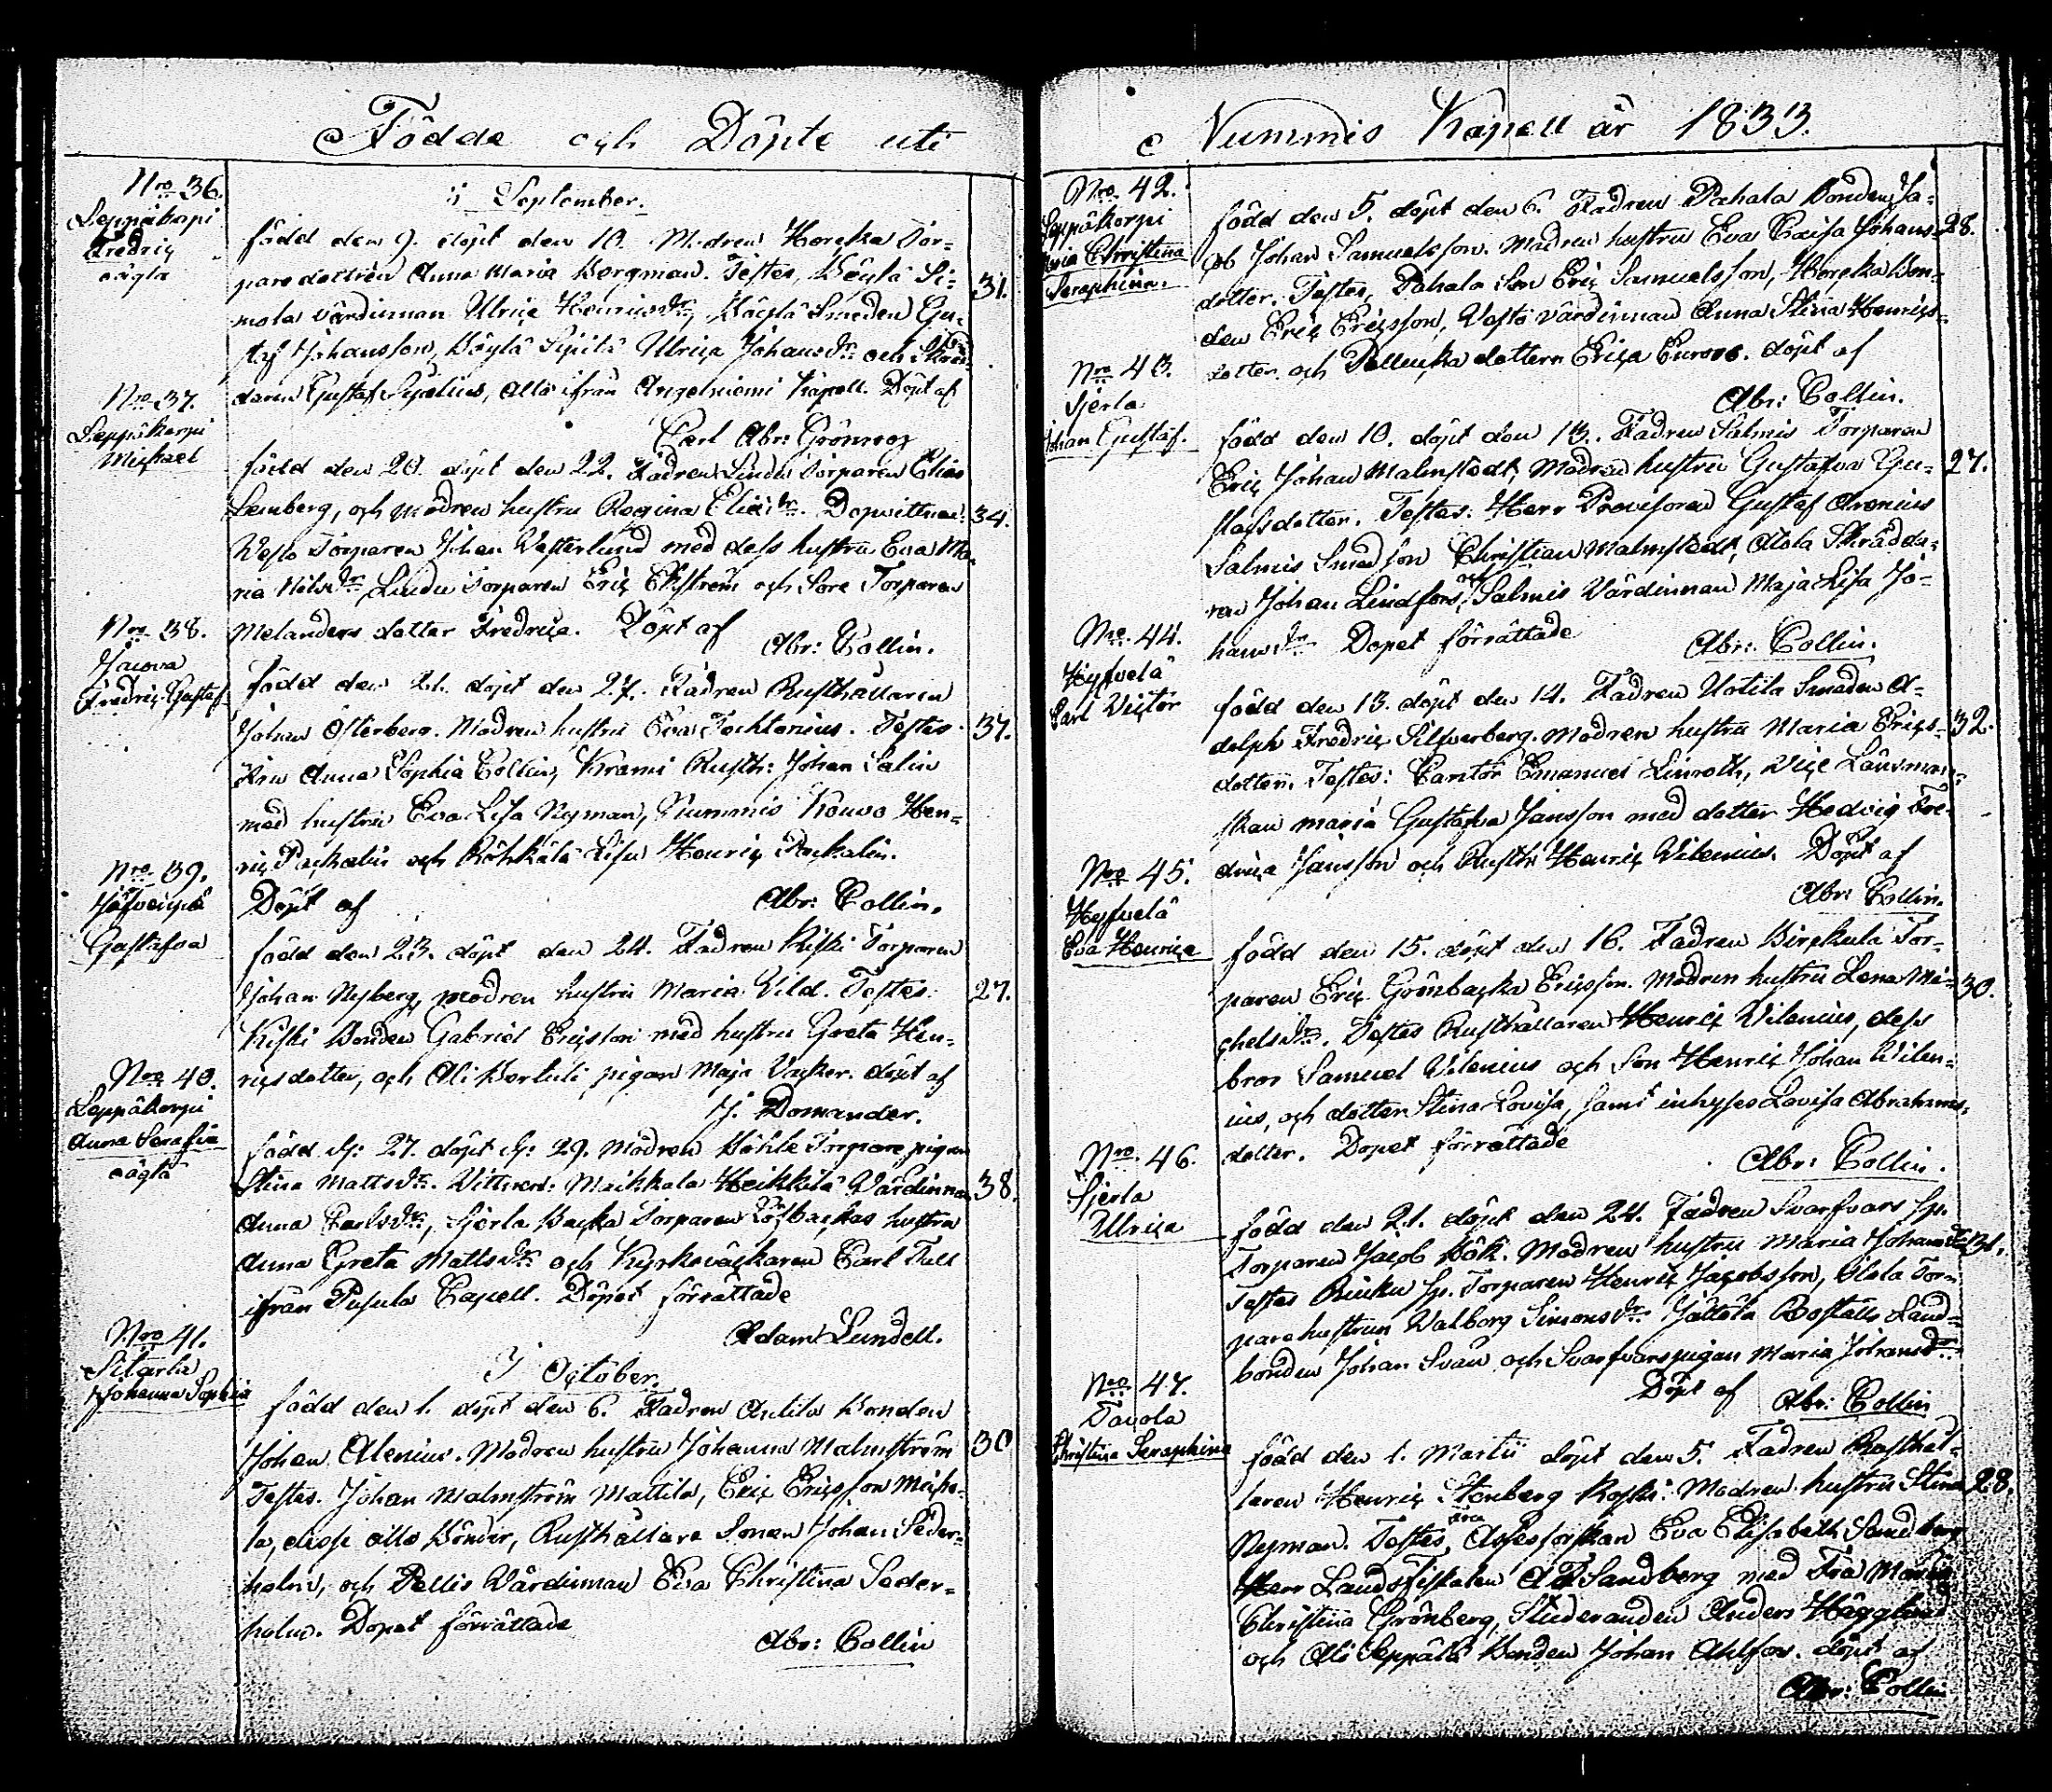 Födde och Döpte uti
Nro 36.
Leppäkorpi
Fredric
oägta
i September.
född den 9. döpt den 10. Modren Horcka Tor-
paredottren Anna Maria Bergman. Testes, Si-
mola värdinnan Ulrica Henricsdr, Smeden Gu-
staf Johansson, Ulrica Johansdr och Skräd-
daren Gustaf alla ifrån Angelniemi Kapell. Döpt af
Carl Abr: Grönroos
31.
Nro 37.
Leppäkorpi
Michael
född den 20. döpt den 22. Fadren Lindu Torparen Elias
Lemberg, och modren hustru Regina Eliædr. Dopvittnen:
Torparen Johan Vesterlund med dess hustru Eva Ma-
ria Nilsdr, Lindu Torparen Eric Ekström och Sore Torparen
Melanders dotter Fredrica. Döpt af
Abr: Collin.
34.
Nro 38.
Fredric Gustaf
född den 21. döpt den 27. Fadren Rusthållaren
Johan Österberg. Modren hustru Eva Testes
Fru Anna Sophia Collin, Krami Rusth: Johan Salin
med hustru Eva Lisa Nyman, Nummis Kouvo Hen-
ric Packalin och Röhkälä Henric Packalin.
Döpt af
Abr: Collin.
37.
Nro 39.
Gustafva
född den 23. döpt den 24. Fadren Kiski Torparen
Johan Nyberg, modren hustru Maria Vild. Testes:
Kiski Bonden Gabriel Ericsson med hustru Greta Hen-
ricsdotter, och pigan Maja döpt af
J. Domander.
27.
Nro 40.
Leppäkorpi
Anna Serafia
oägta
född d: 27. döpt d: 29. Modren Torpare pigan
Stina Mattsdr. Vittnen: Maikkala Heikkilä Värdinnan
Anna Carlsdr, Sjerla Backa Torparen Löfbackas hustru
Anna Greta Mattsdr och Kyrkoväcktaren Carl
ifrån Pusula Capell. Döpet förrättade
Adam Lundell.
38.
Nro 41.
Sitarla
Johanna Sophia
I October.
född den 1. döpt den 6. Fadren Antila Bonden
Johan Alenius. Modren hustru Johanna Malmström
Testes. Johan Malmström Mattila, Eric Ericsson
la, desse alla Bönder, Rusthållare Sonen Johan Seder-
holm, och Pellis Värdinnan Eva Christina Seder-
holm. Dopet förrättade
Abr: Collin
30
Nummis Kapell år 1833.
Nro 42.
Leppäkorpi
Christina
Seraphina.
född den 5. döpt den 6. Fadren Pahala Bonden Ja-
cob Johan Samuelsson. Modren hustru Eva Caisa Johans-
dotter. Testes, Pahala Son Eric Samuelsson, Horcka Bon-
den Eric Ericsson, värdinnan Anna Stina Henrics-
dotter och dottern Erica döpt af
Abr: Collin.
28.
Nro 43.
Sjerla
Johan Gustaf.
född den 10. döpt den 13. Fadren Salmis Torparen
Eric Johan Malmstedt, Modren hustru Gustafva Gu-
stafsdotter. Testes: Herr Provisoren Gustaf Arenius
Salmis Smedson Christian Malmstedt, Skrädda-
ren Johan Lindfors, och Salmis Värdinnan Maja Lisa Jo-
hansdr Dopet förrättade
Abr: Collin.
27.
Nro 44.
Hyfvelä
Carl Victor
född den 13. döpt den 14. Fadren Uotila Smeden A-
dolph Fredric Silfverberg. Modren hustru Maria Erics-
dotter. Testes: Cantor Emanuel Linroth, Vice Länsman-
skan Maria Gustafva Jansson med dotter Hedvig Fre-
drica Jansson och Rusth: Henric Vilenius. Döpt af
Abr: Collin.
32.
Nro 45.
Hyfvelä
Eva Henrica
född den 15. döpt den 16. Fadren Tor-
paren Eric Grönbacka Ericsson. Modren hustru Lena Mi-
chelsdr. Testes Rusthållaren Henric Vilenius, dess
bror Samuel Vilenius och Son Henric Johan Vilen-
ius, och dotter Stina Lovisa, samt inhyses Lovisa Abrahams-
dotter. Dopet förrättade
Abr: Collin.
30.
Nro 46.
Sjerla
Ulrica
född den 21. döpt den 24. Fadren Svarfvars Sp.
Torparen Jacob Bök. Modren hustru Maria Johansdr
Testes Sp. Torparen Henric Jacobsson, Tor-
pare hustrun Valborg Simonsdr Boställs Land-
bonden Johan Svan och Svarfvars pigan Maria Johansdr
Döpt af Abr: Collin
31.
Nro 47.
Tavola
Christina Seraphina
född den 1. Martii döpt den 5. Fadren Rusthål-
laren Henric Stenberg Modren hustru Stina
Nyman. Testes, Assessorskan Eva Elisabeth Sandberg
Herr Landsfiskalen Sandberg med Fru Maria
Christina Grönberg, Studeranden Anders Hägglund
och Ali Seppälä Bonden Johan Ahlfors. döpt af
Abr: Collin
28.